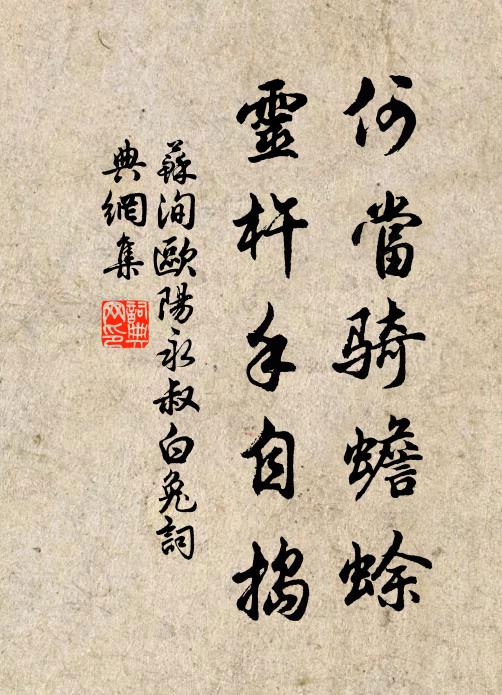 何當騎蟾蜍
靈杵手自搗
蘇洵歐陽永叔白兔詞
典網集
詞典網印